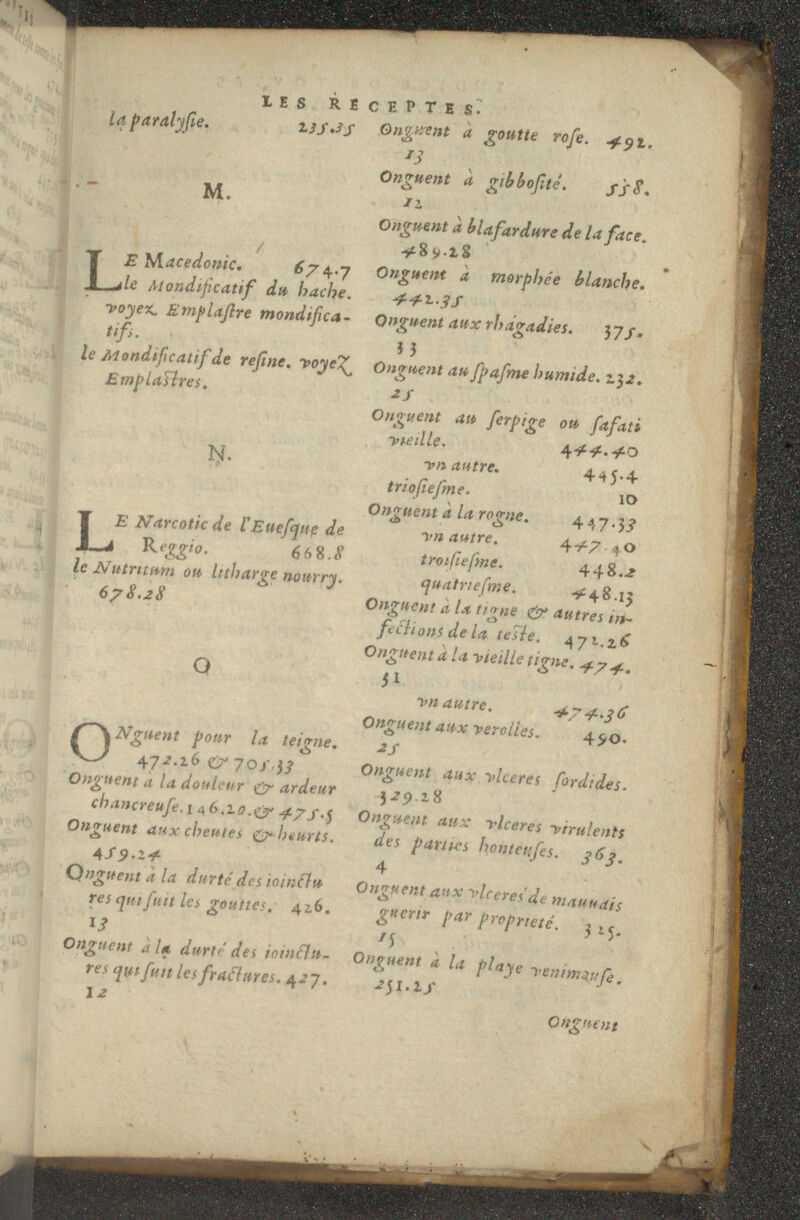 LES RECEPTES.
la paralyſie. 235.35
M.
LE Macedonic. 674.7
le Mondificatif du hache.
voyez Emplaſtre mondifica-
tifs.
le Mondificatif de reſine. voyez
Emplaſtres.
N.
LE Narcotic de l'Eueſque de
Reggio. 668.8
le Nutritum ou litharge nourry.
678.28
O
ONguent pour la teigne.
472.26 & 705.33
Onguent a la douleur & ardeur
chancreuſe. 146.20. & 475.5
Onguent aux cheutes & heurts.
459.24
Onguent à la durté des ioinctu
res qui ſuit les gouttes. 426.
13
Onguent à la durté des ioinctu-
res qui ſuit les fractures. 427.
12
Onguent à goutte roſe. 492.
13
Onguent à gibboſité. 558.
12
Onguent à blafardure de la face.
489.28
Onguent à morphée blanche.
442.35
Onguent aux rhagadies. 375.
33
Onguent au ſpaſme humide. 232.
25
Onguent au ſerpige ou ſafati
vieille. 444.40
vn autre. 445.4
trioſieſme. 10
Onguent à la rogne. 447.33
vn autre. 447.40
troiſieſme. 448.2
quatrieſme. 448.13
Onguent à la tigne & autres in-
fections de la teſte. 472.26
Onguent à la vieille tigne. 474.
31
vn autre. 474.36
Onguent aux verolles. 490.
25
Onguent aux vlceres ſordides.
329.28
Onguent aux vlceres virulents
des parties honteuſes. 363.
4
Onguent aux vlceres de mauuais
guerir par proprieté. 325.
15
Onguent à la playe venimeuſe.
251.25
Onguent